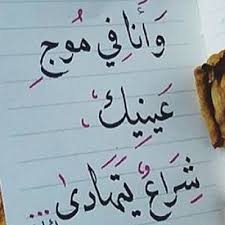 وَأَنا في مُوجِ
عَينِيك،
شِرَاعٌ يَتَهادىٰ...